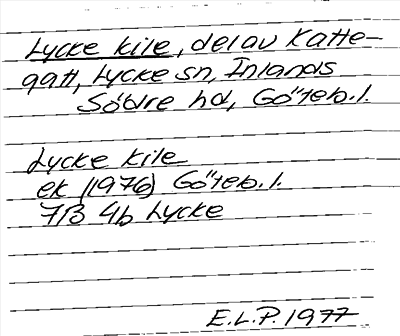 Lycke kile, del av Katte-
gatt, Lycke sn, Inlands
Södre hd, Göteb.l.
Lycke kile
ek (1976) Göteb.l.
7B 4b Lycke
E.L.P. 1977